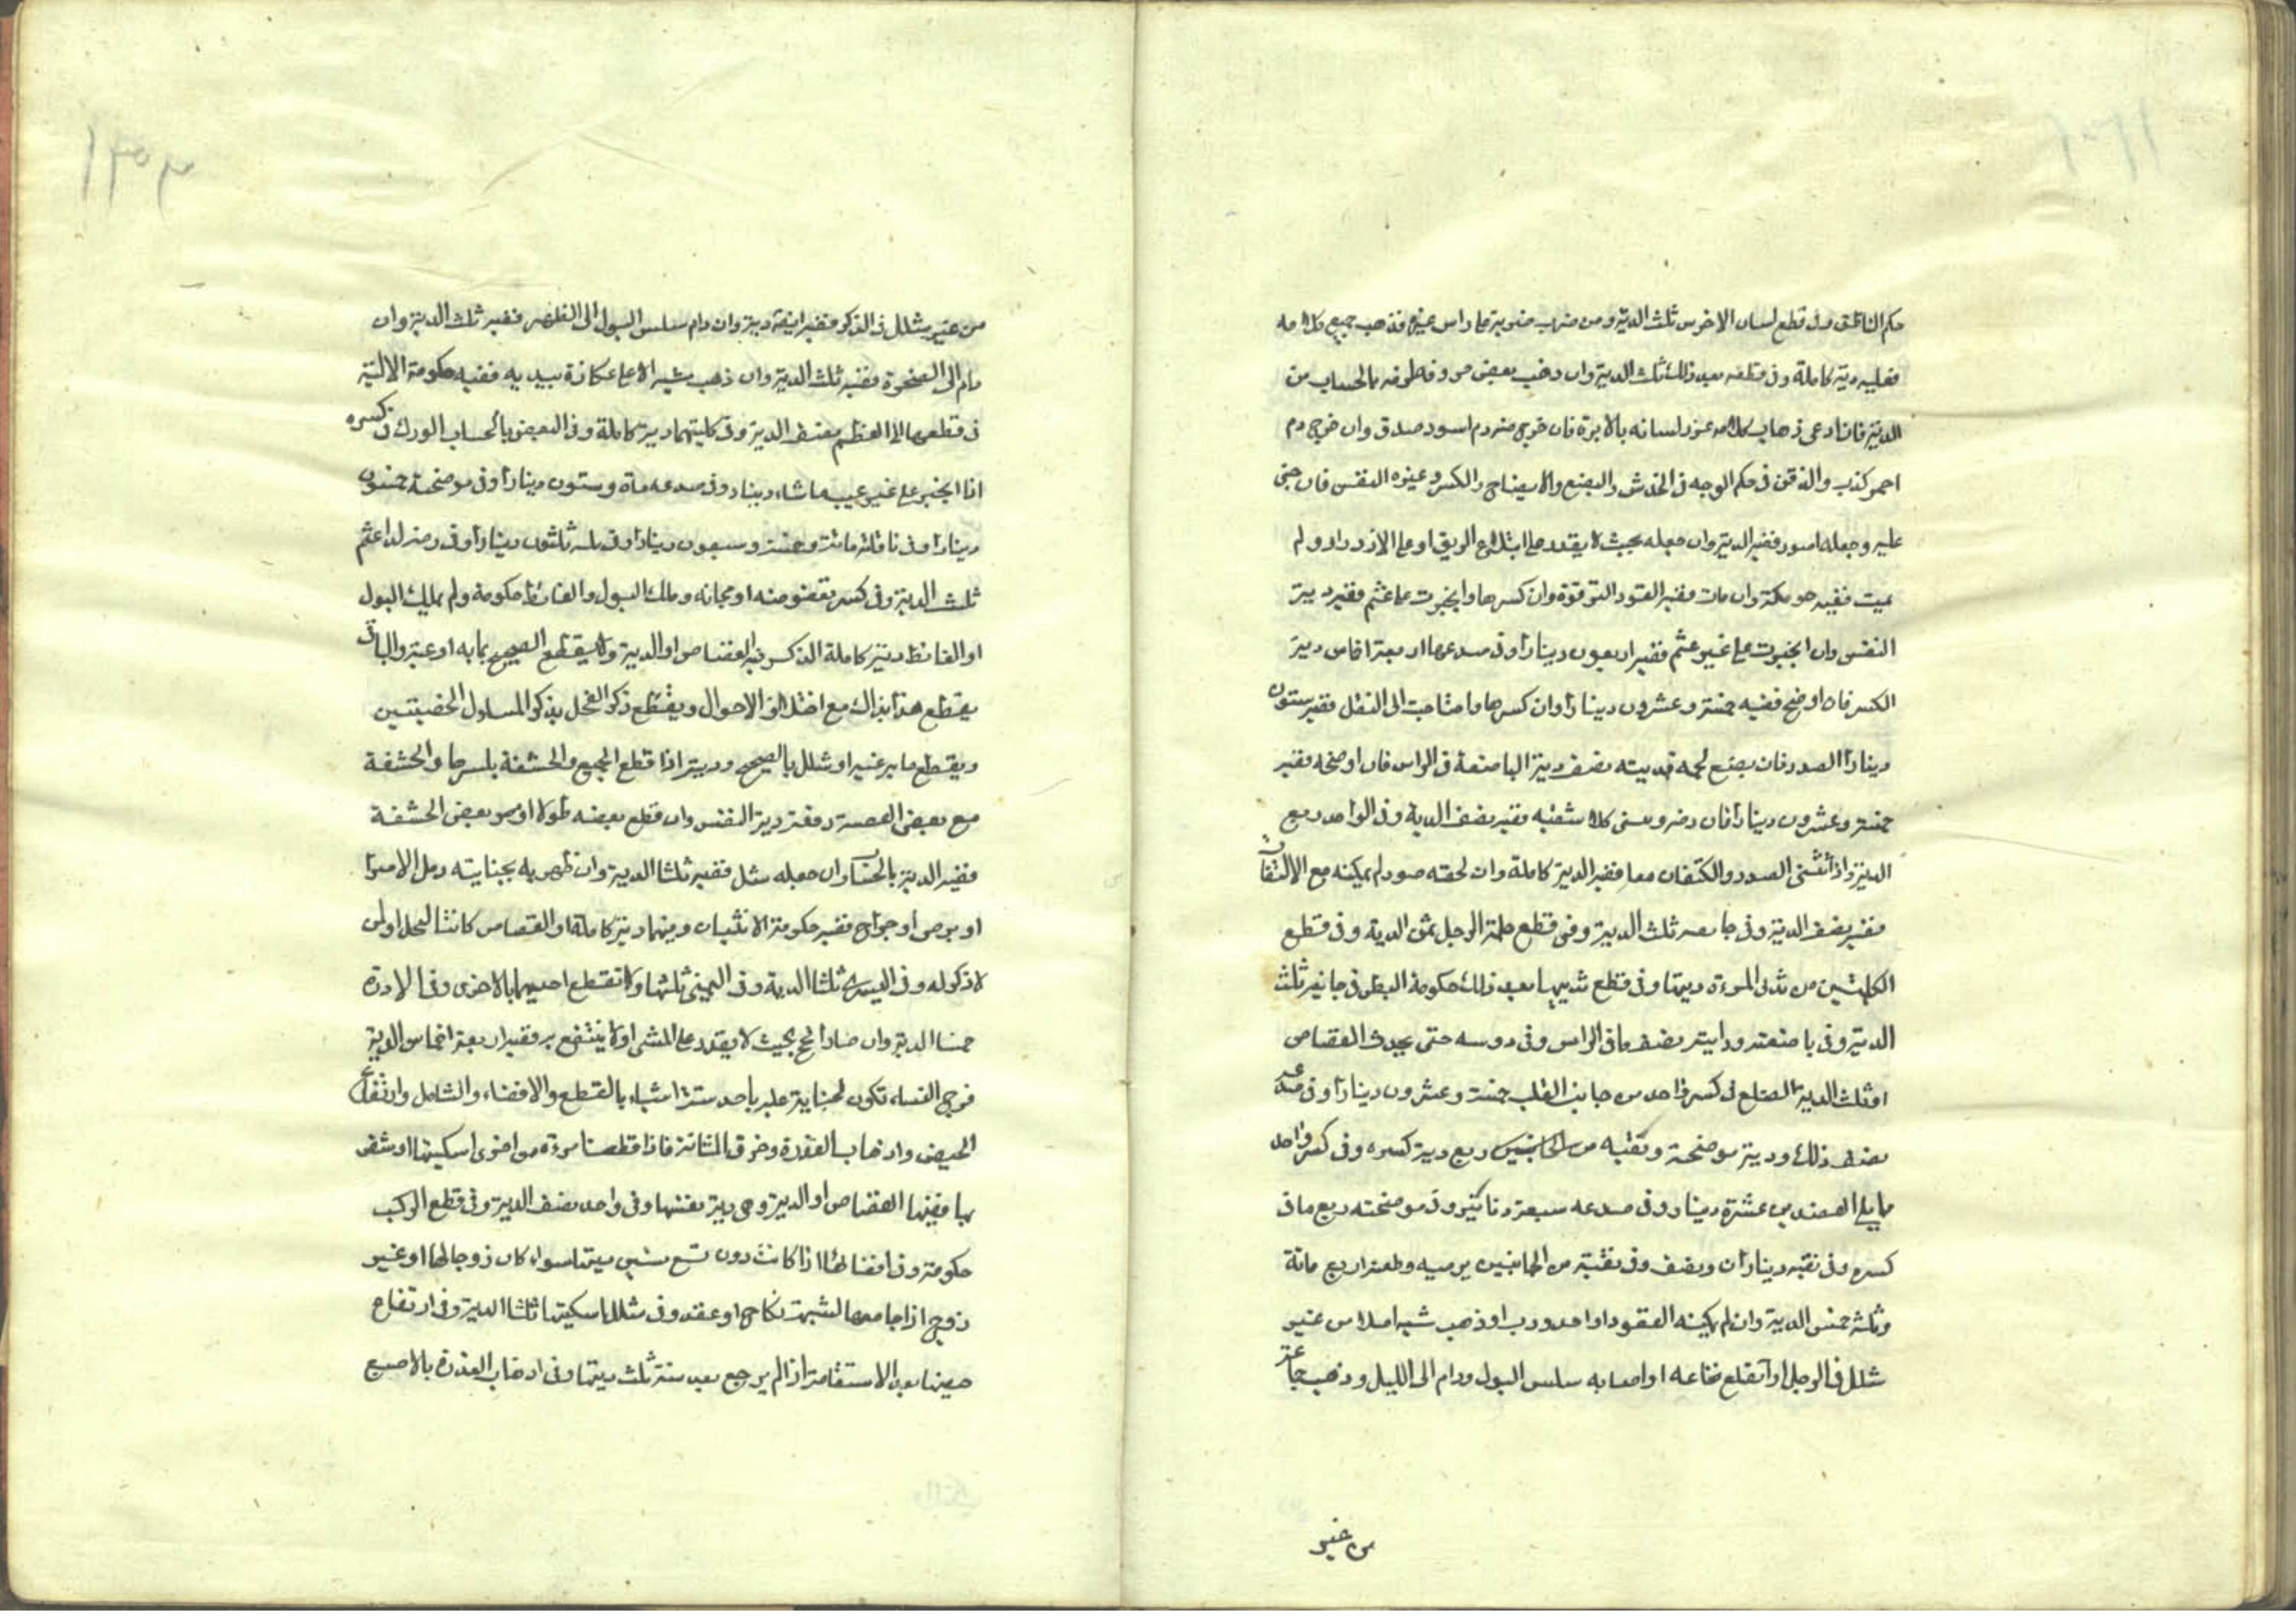 حكم الناطق وفى قطع لسان الاخرس ثلث الدية ومن ضرب ضربة على راس غيره فذهب جميع كلامه
فعليه دية كاملة وفى قطعه بعد ذلك ثلث الدية وان ذهب بعض حروفه طرفه بالحساب من
الدية فان ادعى ذهاب كلامه غرز لسانه بالابرة فان خرج منه دم اسود صدق وان خرج دم
احمر كذب والذقن فى حكم الوجه فى الخدش والبضع والايضاح والكسر وغيره النفس فان جنى
عليه وجعله اصور ففيه الدية وان جعله بحيث لا يقدر على ابتلاع الريق او على الازدراد ولم
يمت ففيه حومكة وان مات ففيه القود الترقوة وان كسرها وانجبرت على عثم ففيه دية
النفس وان انجبرت على غير عثم ففيه اربعون دينارا وفى صدعها اربعة اخماس دية
الكسر فان اوضح ففيه خمسة وعشرون دينارا وان كسرها واحتاجت الى النقل ففيه ستون
دينارا الصدر فان بضع لحمه فديته نصف دية الباضعة فى الراس فان اوضحه ففيه
خمسة وعشرون دينارا فان رضه وسنى كلا شقيه ففيه نصف الدية وفى الواحد ربع
الدية واذا انثنى الصدر والكتفان معا ففيه الدية كاملة وان لحقته صور لم يمكنه مع الالتفات
ففيه نصف الدية وفى جايفته ثلث الدية وفى قطع حلمة الرجل ثمن الدية وفى قطع
الحلمتين من ثدى المرءة ديتها وفى قطع ثدييها بعد ذلك حكومة البطن فى جايفته ثلث
الدية وفى باضعته وداميته نصف ما فى الراس وفى دوسه حتى يحدث القصاص
او ثلث الدية الضلع فى كسر واحد من جانب القلب خمسة وعشرون دينارا وفى صدعه
نصف ذلك ودية موضحة ونقبه من الجانبين ربع دية كسره وفى كسر واحد
مما يلى العضدين عشرة دينار وفى صدعه سبعة دنانير وفى موضحته ربع ما فى
كسره وفى نقبه ديناران ونصف وفى نقبة من الجانبين برميه وطعنه اربع مائة
وثلثه خمس الدية وان لم يمكنه القعود او احدودب او ذهب مشيه اصلا من غير
شلل فى الرجل او انقطع نخاعه او اصابه سلس البول ودام الى الليل وذهب جماعه
من غير
من غير شلل فى الذكر ففيه ايضا دية وان دام سلس البول الى الظهر ففيه ثلث الدية وان
دام الى الضحوة ففيه ثلث الدية وان ذهب مشيه الا على عكازة بيديه ففيه حكومة الالية
فى قطعها الى العظم نصف الدية وفى كليتهما دية كاملة وفى البعض بالحساب الورك فى كسره
اذا انجبر على غير عيب ماشاء دينار وفى صدعه مأة وستون دينارا وفى موضحة خمسون
دينارا وفى ناقلته مائة وخمسة وسبعون دينارا وفى ثلثون دينارا وفى رضه لو عثم
ثلث الدية وفى كسر بعضوصه او عجانه وملك البول والغائط حكومة ولم يملك البول
او الغائط دية كاملة الذكر فيه القصاص او الدية ولا يقطع الصحيح بما به او عيب والباقى
يقطع هذا بذاك مع اختلاف الاحوال ويقطع ذكر الفحل بذكر المسلول الخصيتين
ويقطع ما به عيب او شلل بالصحيح وديته اذا قطع الجميع والحشفة باسرها والحشفة
مع بعض القصبة دفعة دية النفس وان قطع بعضه طولا او بعض الحشفة
ففيه الدية بالحساب وان جعله شلل ففيه ثلثا الدية وان ظهر به بجنايته دمل الامرا
او برص او جراح ففيه حكومة الانثيان وفيهما دية كاملة او القصاص كانتا لفحل اولمن
لا ذكر له وفى اليسرى ثلثا الدية وفى اليمنى ثلثها ولا تقطع احديهما بالاخرى وفى الادرة
خمسا الدية وان صار افحج بحيث لا يقدر على المشى او لا ينتفع به ففيه اربعة اخماس الدية
فرج النساء تكون لجناية عليه باحد ستة اشياء بالقطع والافضاء والشلل وارتفاع
الحيض واذهاب العذرة وخرق المثانة فاذا قطعت امرءة من اخرى اسكيتها او شفر
بها ففيها القصاص او الدية وهى دية نفسها وفى واحد نصف الدية وفى قطع الركب
حكومة وفى افضائها اذا كانت دون تسع سنين ديتها سواء كان زوجا لها او غير
زوج اذا جامعها لشبهة نكاح او عقد وفى شلل اسكيتها ثلثا الدية وفى ارتفاع
حيضها بعد الاستقامة اذا لم يرجع بعد سنة ثلث ديتها وفى اذهاب العذرة بالاصبع